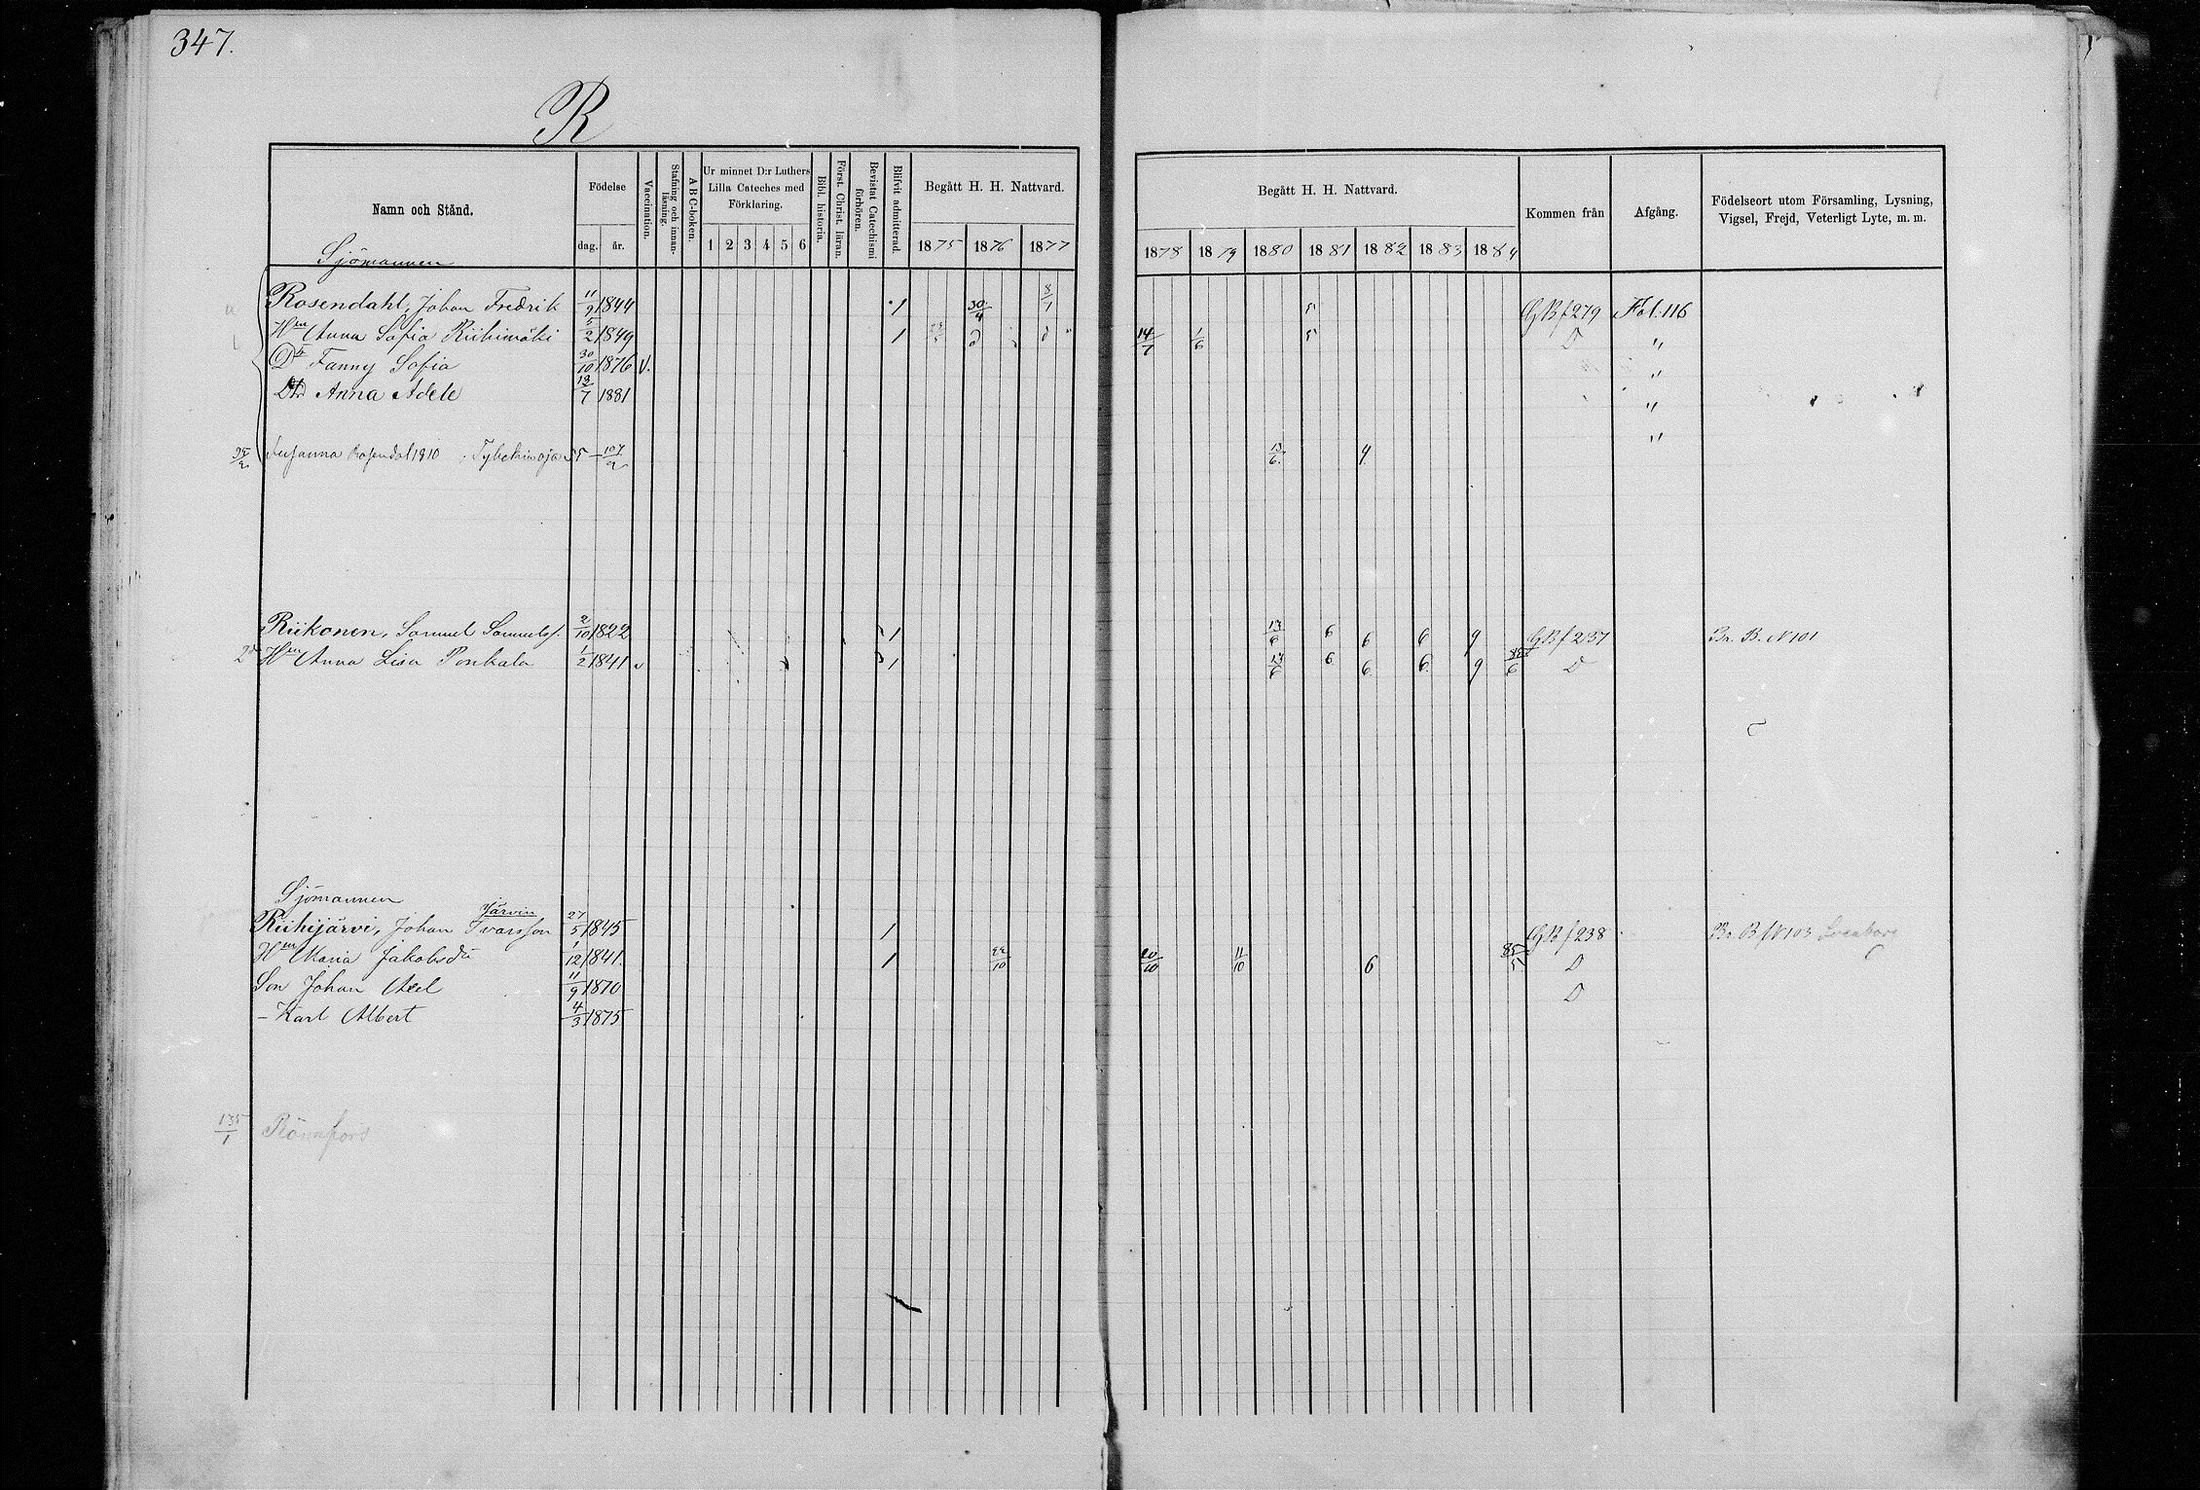 347.
R
Namn och Stånd.
Födelse
dag. år.
Vaccination.
Stafning och innanläsning.
A B C-boken.
Ur minnet D:r Luthers Lilla Cateches med Förklaring.
1 2 3 4 5 6
Bibl. historia.
Först. Christ. läran.
Bevistat Catechismi förhören.
Blifvit admitterad.
Begått H. H. Nattvard.
1875 1876 1877
Begått H. H. Nattvard.
1878 1879 1880 1881 1882 1883 1884
Kommen från
Afgång.
Födelseort utom Församling, Lysning, Vigsel, Frejd, Veterligt Lyte, m. m.
Sjömannen
Rosendahl, Johan Fredrik 11/9 1844 1 30/4 8/1 5 GB f 279 Fol. 116
Hm Anna Sofia Riihimäki 5/2 1849 1 14/7 1/6 5 D "
Dr Fanny Sofia 30/10 1876 v. "
Dtr Anna Adele 13/7 1881 "
Susanna Rosendal 1810 13/6 4 "
Riikonen, Samuel Samuelss. 2/10 1822 1 13/6 6 6 6 9 GB f 237 Br. B. N 101
2dr Hm Anna Lisa Ponkala 1/2 1841 v 1 13/6 6 6 6 9 D
Sjömannen
Järvin
Riihijärvi, Johan Ivarsson 27/5 1845 1 GB f 238 Br B f N 103
Hm Maria Jakobsdr 1/12 1841. 1 22/10 20/10 11/10 6 85/5 D
Son Johan Axel 11/9 1870 D
- Karl Albert 4/3 1875
135/1 Rönnfors